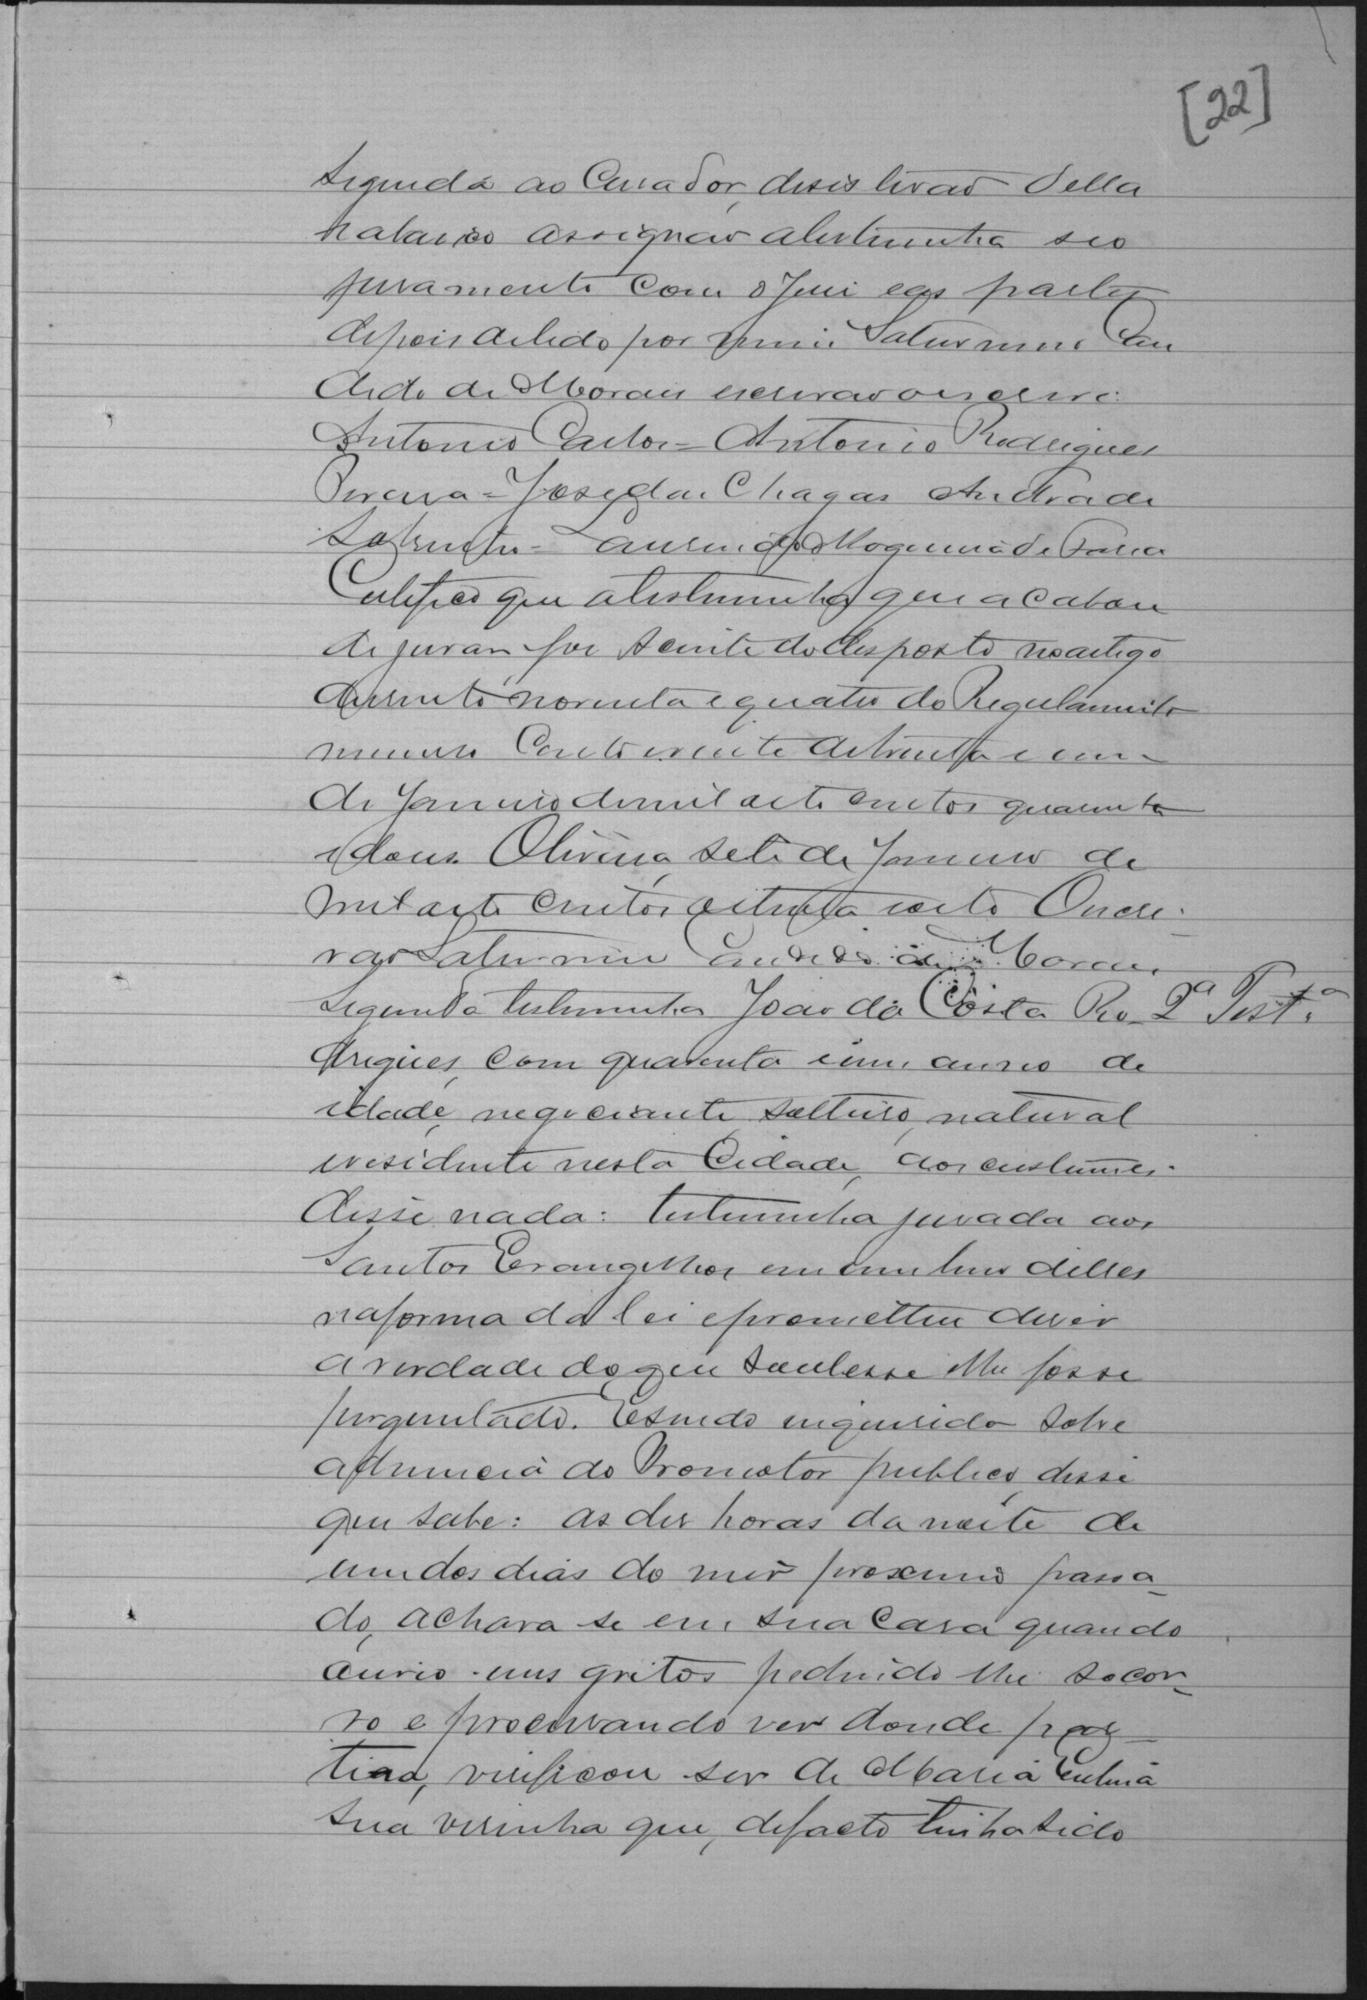 [22]
Segunda ao Curador, desistirão della
assignar atestimunha seo
juramento com o Juiz eas partes
depois delido por mim Saturnino Can
dido de Moraes escrivão oescrevi:
Antonio Carlos = Antonio Rodrigues
Pereira = José das Chagas Andrade
Sobrinho = Laurindo Nogueira de Faria
Certifico que atestimunha que acabou
dejurar foi sciente dodisposto noartigo
dusento noventa equatro do Regulamento
numero Centoevinte detrinta e um
de Janeiro demil oito centos quarenta
edous. Oliveira, sete de Janeiro de
mil oito centos oitenta eoito Oescri-
vão Saturnino Candido de Moraes
Segunda testimunha João da Costa Ro- 2ª Testª
drigues, com quarenta eum annos de
idade, negociante, solteiro, natural
eresidente nesta Cidade, aos custumes
disse nada: testimunha jurada aos
Santos Evangelhos em um livro delles
naforma da lei eprometteu diser
averdade doque soubesse elhe fosse
perguntado. Esendo inquirido sobre
adenuncia do Promotor publico, disse
que sabe: as des horas da noite de
um dos dias do mez proximo passa-
do, achava se em sua casa quando
ouvio uns gritos pedindo lhe socor-
ro e procurando ver donde par-
tião, verificou ser de Maria
sua visinha que, defacto tinha sido